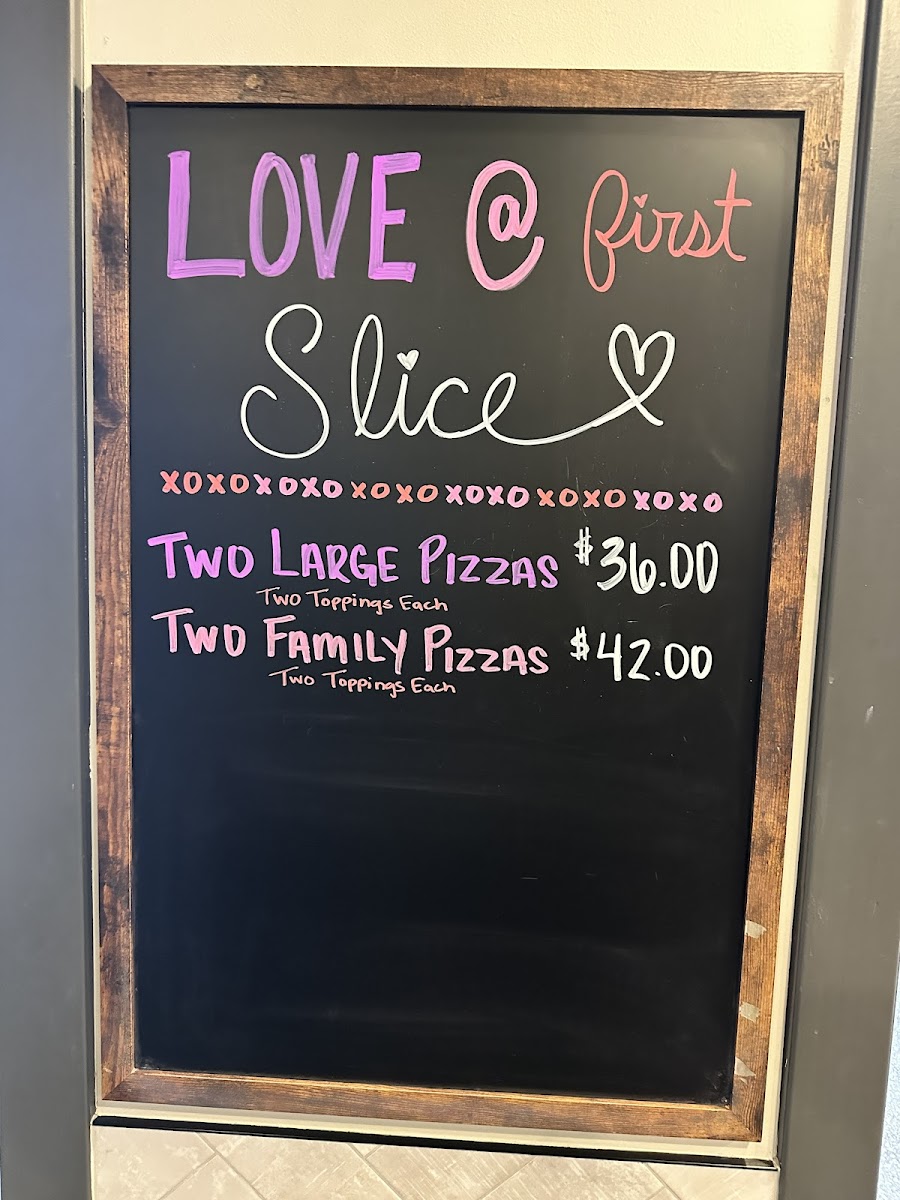 LOVE @ first
Slice
XOXOXOXOXOXOXOXOXOXOXOXO
TWO LARGE PIZZAS $36.00
Two Toppings Each
TWO FAMILY PIZZAS $42.00
Two Toppings Each